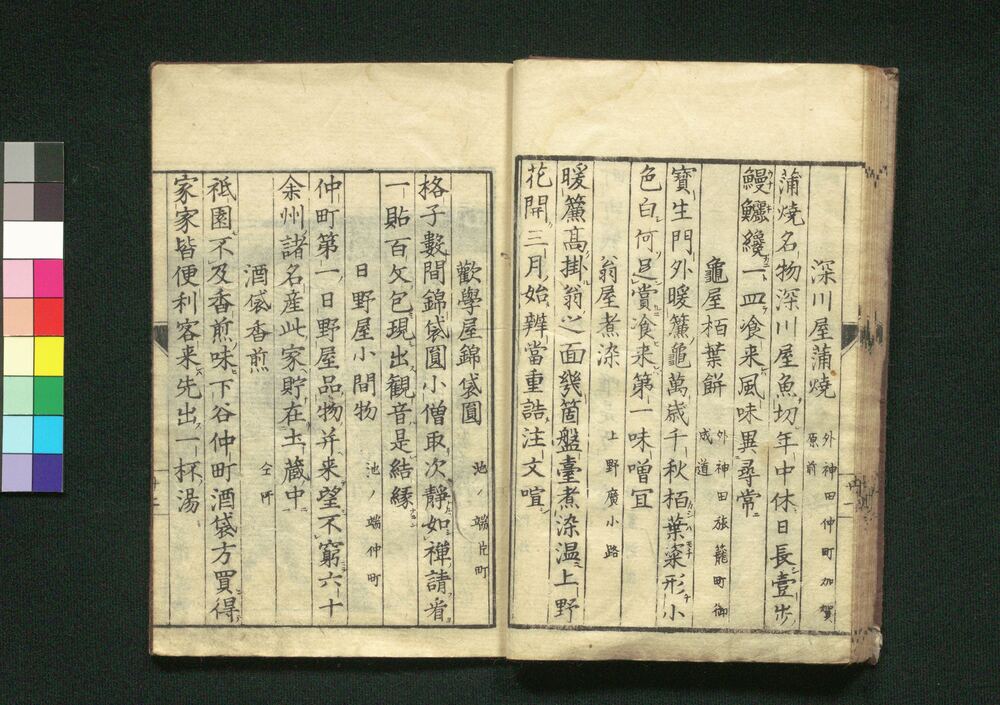 深川屋蒲燒 外神田仲町加賀原前
蒲燒名物深川屋魚切年中休日長壹步
鰻鱺纔一皿喰来風味異尋常
龜屋栢葉餅 外神田旅籠町御成道
寶生門外暖簾龜萬歳千秋栢葉粢形小
色白何足賞喰来第一味噌冝
翁屋煮染 上野廣小路
暖簾髙掛翁之面幾箇盤臺煮染温上野
花開三月始辨當重詰注文喧
歡學屋錦袋圓 池ノ端片町
格子數間錦袋圓小僧取次靜如禅請看
一貼百文包現出観音是結縁
日野屋小間物 池ノ端仲町
仲町第一日野屋品物并来望不窮六十
余州諸名産此家貯在土藏中
酒袋香煎 仝所
祗園不及香煎味下谷仲町酒袋方買得
家家皆便利客来先出一杯湯